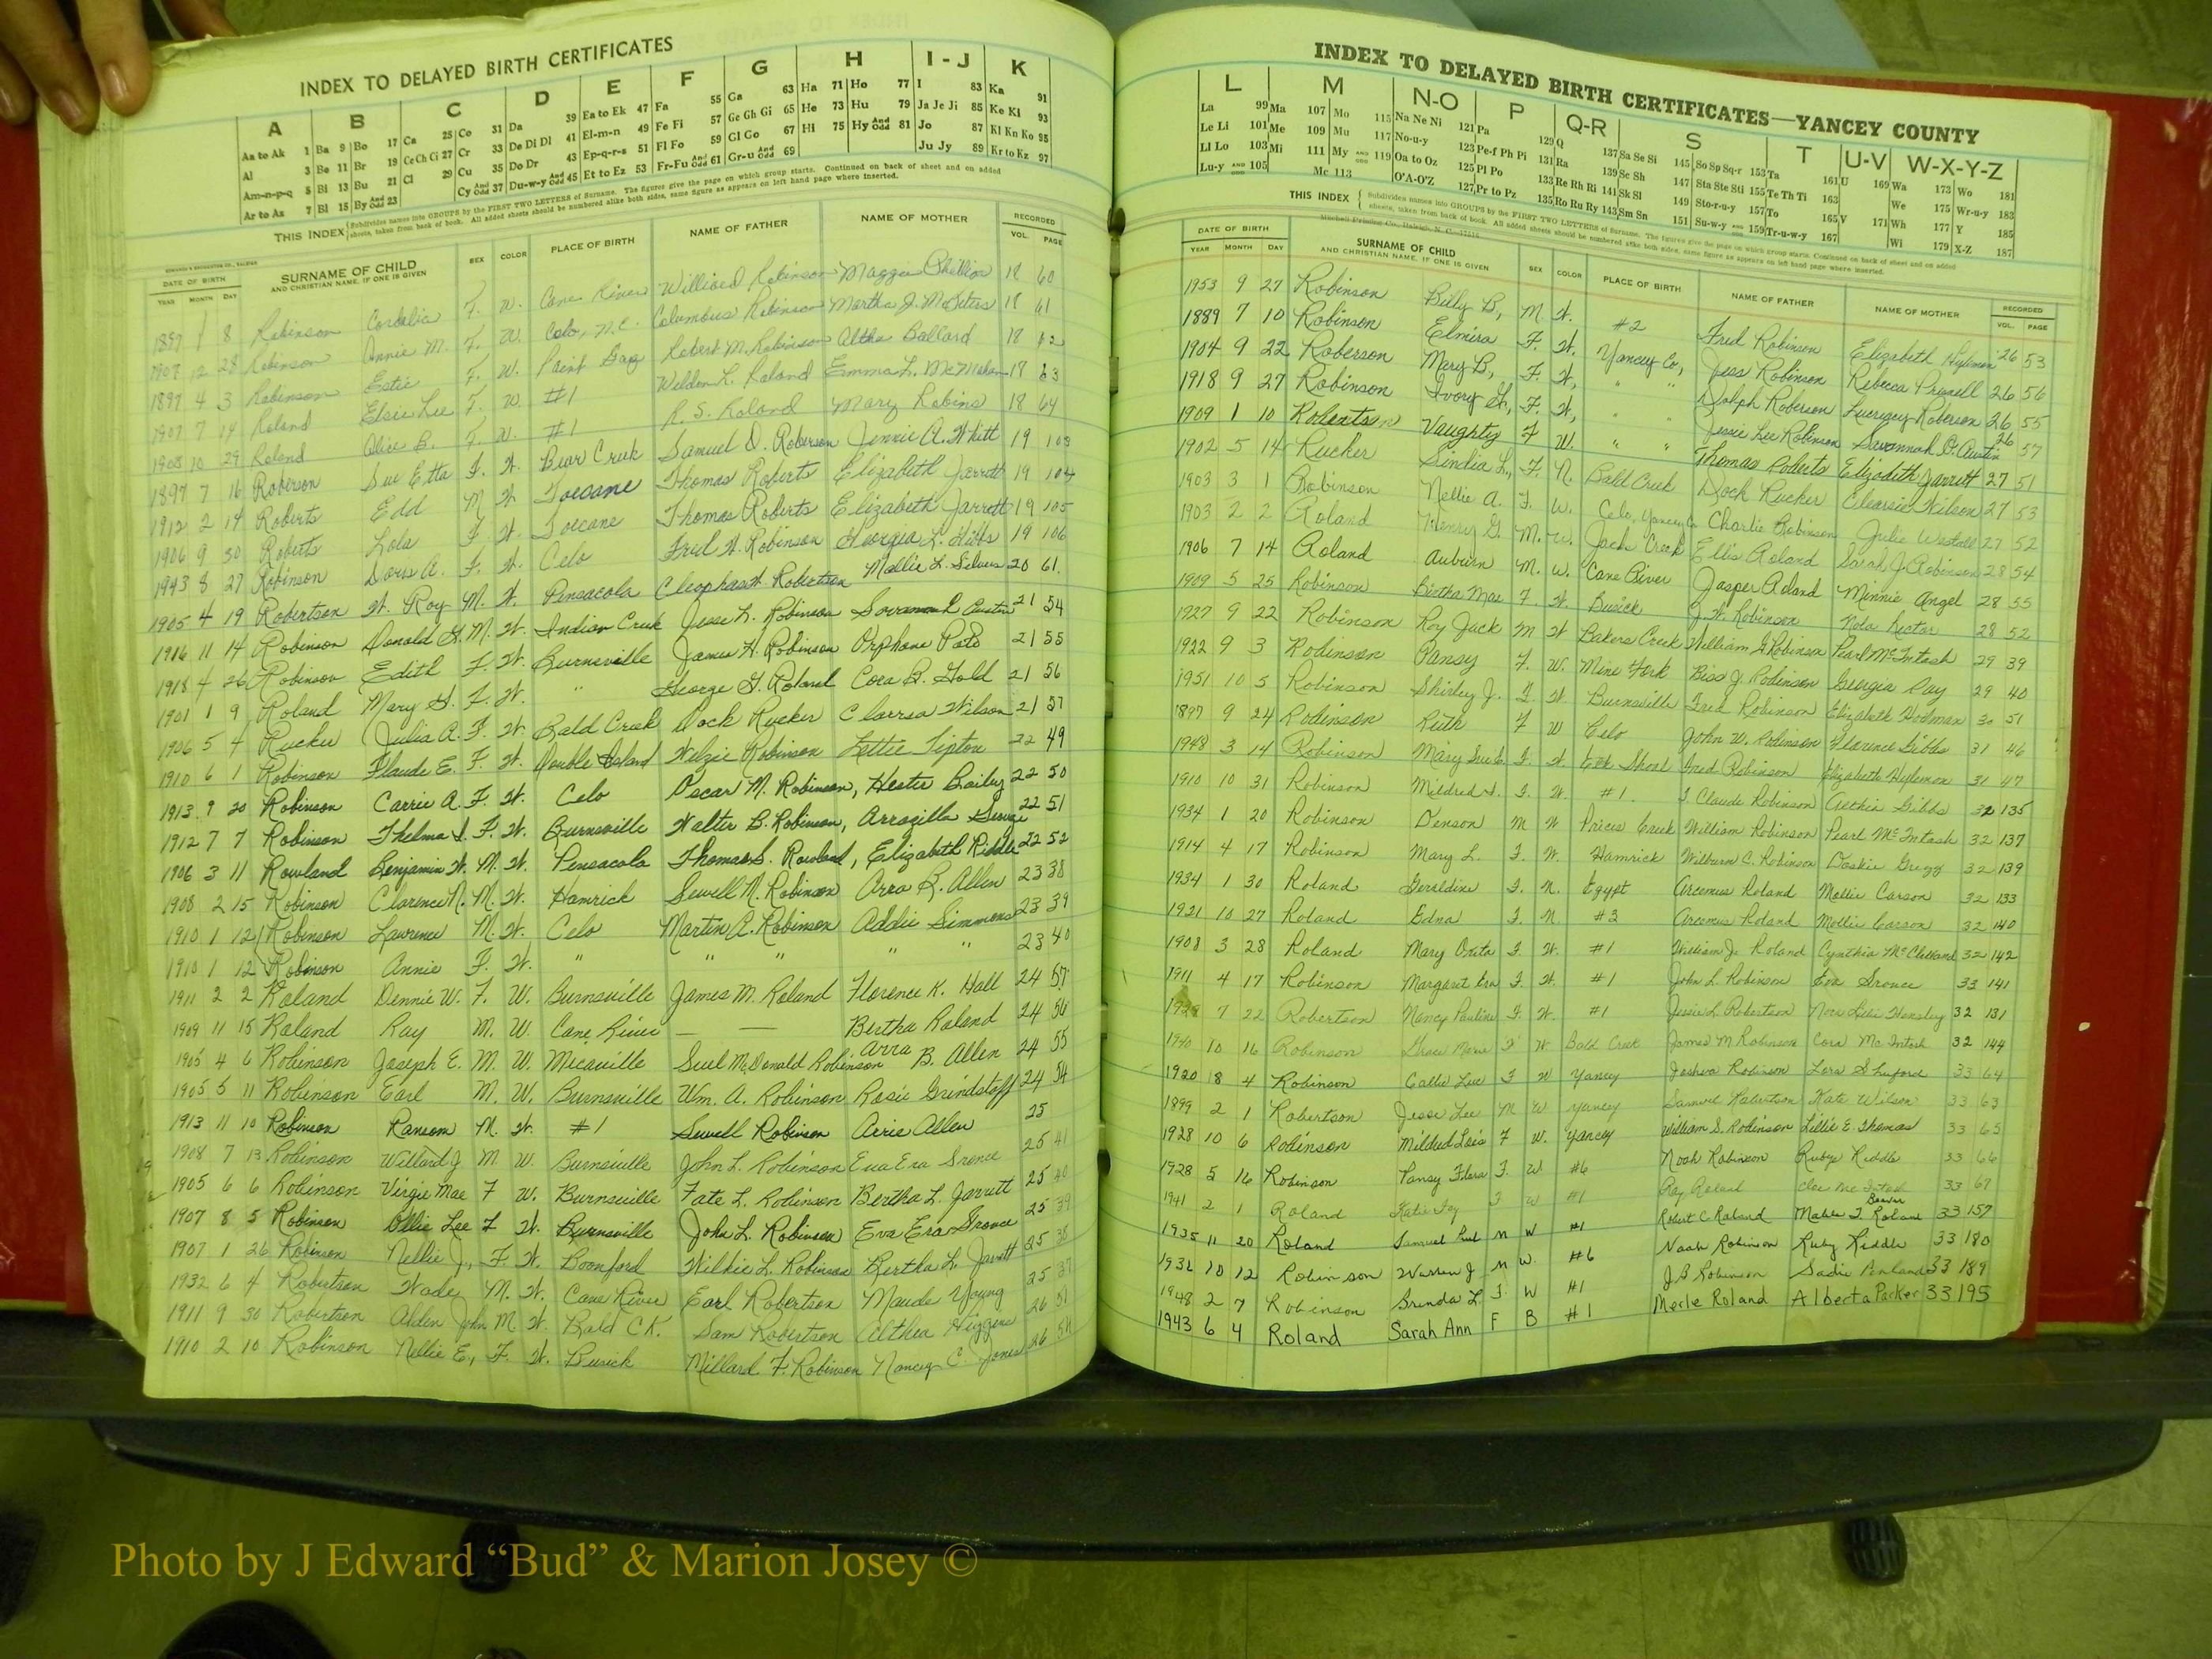 INDEX TO DELAYED BIRTH CERTIFICATES
A B C D E F G H I-J K
Aa to Ak 1 Ba 9 Bo 17 Ca 25 Co 31 Da 39 Ea to Ek 47 Fa 55 Ga 63 Ha 71 Ho 77 I 83 Ka 91
Al 3 Be 11 Br 19 Ce Ch Ci 27 Cr 33 De Di Dl 41 El-m-n 49 Fe Fi 57 Ge Gh Gi 65 He 73 Hu 79 Ja Je Ji 85 Ke Kl 93
Am-n-p-q 5 Bi 13 Bu 21 Cl 29 Cu 35 Do Dr 43 Ep-q-r-s 51 Fl Fo 59 Gl Go 67 Hi 75 Hy And Odd 81 Jo 87 Kl Kn Ko 95
Ar to Az 7 Bl 15 By And Odd 23 Cy And Odd 37 Du-w-y And Odd 45 Et to Ez 53 Fr-Fu And Odd 61 Gr-u And Odd 69 Ju Jy 89 Kr to Kz 97
THIS INDEX Subdivides names into GROUPS by the FIRST TWO LETTERS of Surname. The figures give the page on which group starts. Continued on back of sheet and on added
sheets, taken from back of book. All added sheets should be numbered alike both sides, same figure as appears on left hand page where inserted.
DATE OF BIRTH SURNAME OF CHILD SEX COLOR PLACE OF BIRTH NAME OF FATHER NAME OF MOTHER RECORDED
YEAR MONTH DAY AND CHRISTIAN NAME, IF ONE IS GIVEN VOL. PAGE
8 Robinson Cordelia F. W. Cane River Robinson Maggie 18 60
1907 12 28 Robinson Annie M. F. W. Celo, N.C. Columbus Robinson Martha J. McPeters 18 61
1897 4 3 Robinson Estie F. W. Paint Gap Robert M. Robinson Altha Ballard 18 62
1907 7 14 Roland Elsie Lee F. W. #1 Weldon L. Roland Emma L. McMahan 18 63
1908 10 29 Roland Olive B. F. W. #1 R. S. Roland Mary Robins 18 64
1897 7 16 Roberson Sue Etta F. W. Bear Creek Samuel D. Roberson Jennie A. Whitt 19 103
1912 2 14 Roberts Edd M W. Toecane Thomas Roberts Elizabeth Jarrett 19 104
1906 9 30 Roberts Lola F W. Toecane Thomas Roberts Elizabeth Jarrett 19 105
1943 8 27 Robinson Doris A. F. W. Celo Fred W. Robinson Georgia L. Gibbs 19 106
1905 4 19 Robertson W. Roy M. W. Pensacola Robertson Mollie L. Silvers 20 61
1916 11 14 Robinson Donald G. M. W. Indian Creek Jesse L. Robinson Austin 21 54
1918 4 26 Robinson Edith F. W. Burnsville James H. Robinson 21 55
1901 1 9 Roland Mary G. F. W. " George G. Roland Cora B. Gold 21 56
1906 5 4 Rucker Julia A. F. W. Bald Creek Dock Rucker Wilson 21 57
1910 6 1 Robinson Flaude E. F. W. Double Island Welzie Robinson Lettie Tipton 22 49
1913 9 20 Robinson Carrie A. F. W. Celo Oscar M. Robinson, Hester Bailey 22 50
1912 7 7 Robinson Thelma I. F. W. Burnsville Walter B. Robinson, Arrozilla 22 51
1906 3 11 Rowland Benjamin W. M. W. Pensacola Thomas S. Rowland, Elizabeth Riddle 22 52
1908 2 15 Robinson Clarence N. M. W. Hamrick Sewell M. Robinson Arra B. Allen 23 38
1910 1 12 Robinson Lawrence M. W. Celo Martin A. Robinson Addie Simmons 23 39
1910 1 12 Robinson Annie F. W. " " " " " 23 40
1911 2 2 Roland Dennie W. F. W. Burnsville James M. Roland Florence K. Hall 24 57
1909 11 15 Roland Ray M. W. Cane River — — Bertha Roland 24 56
1905 4 6 Robinson Joseph E. M. W. Micaville Suel McDonald Robinson Arra B. Allen 24 55
1905 5 11 Robinson Earl M. W. Burnsville Wm. A. Robinson Rosie Grindstaff 24 54
1913 11 10 Robinson Ransom M. W. #1 Sewell Robinson Arrie Allen 25
1908 7 13 Robinson Willard J. M. W. Burnsville John L. Robinson Eva Era Sronce 25 41
1905 6 6 Robinson Virgie Mae F W. Burnsville Fate L. Robinson Bertha L. Jarrett 25 40
1907 8 5 Robinson Ollie Lee F W. Burnsville John L. Robinson Eva Era Sronce 25 39
1907 1 26 Robinson Nellie J., F. W. Boonford Wilkie L. Robinson Bertha L. Jarrett 25 38
1932 6 4 Robertson Wade M. W. Cane River Earl Robertson Maude Young 25 37
1911 9 30 Robertson Alden John M. W. Bald CK. Sam Robertson Althea Higgins 26 51
1910 2 10 Robinson Nellie E., F. W. Busick Millard F. Robinson Nancy C. Jones 26 54
INDEX TO DELAYED BIRTH CERTIFICATES—YANCEY COUNTY
L M N-O P Q-R S T U-V W-X-Y-Z
La 99 Ma 107 Mo 115 Na Ne Ni 121 Pa 129 Q 137 Sa Se Si 145 So Sp Sq-r 153 Ta 161 U 169 Wa 173 Wo 181
Le Li 101 Me 109 Mu 117 No-u-y 123 Pe-f Ph Pi 131 Ra 139 Sc Sh 147 Sta Ste Sti 155 Te Th Ti 163 We 175 Wr-u-y 183
Ll Lo 103 Mi 111 My AND ODD 119 Oa to Oz 125 Pl Po 133 Re Rh Ri 141 Sk Sl 149 Sto-r-u-y 157 To 165 V 171 Wh 177 Y 185
Lu-y AND 105 Mc 113 O'A-O'Z 127 Pr to Pz 135 Ro Ru Ry 143 Sm Sn 151 Su-w-y AND 159 Tr-u-w-y 167 Wi 179 X-Z 187
THIS INDEX Subdivides names into GROUPS by the FIRST TWO LETTERS of Surname. The figures give the page on which group starts. Continued on back of sheet and on added
sheets, taken from back of book. All added sheets should be numbered alike both sides, same figure as appears on left hand page where inserted.
DATE OF BIRTH SURNAME OF CHILD SEX COLOR PLACE OF BIRTH NAME OF FATHER NAME OF MOTHER RECORDED
YEAR MONTH DAY AND CHRISTIAN NAME, IF ONE IS GIVEN VOL. PAGE
1953 9 27 Robinson Billy B., M W. #2 Fred Robinson Elizabeth 26 53
1889 7 10 Robinson Elmira F. W. Yancey Co, Jess Robinson Rebecca 26 56
1904 9 22 Roberson Mary B., F. W, " " Dolph Roberson Roberson 26 55
1918 9 27 Robinson Ivory F. W, " " Jessie Lee Robinson Savannah Austin 26 57
1909 1 10 Robertson Vaughty F W. " " Thomas Roberts Elizabeth Jarrett 27 51
1902 5 14 Rucker Sindia L., F. N. Bald Creek Dock Rucker Wilson 27 53
1903 3 1 Robinson Nellie A. F. W. Celo, Yancey Co Charlie Robinson Julie Westall 27 52
1903 2 2 Roland Henry G. M. W. Jacks Creek Ellis Roland Sarah J. Robinson 28 54
1906 7 14 Roland Auburn M. W. Cane River Jasper Roland Minnie Angel 28 55
1909 5 25 Robinson Bertha Mae F. W. Busick J. W. Robinson Nola Rector 28 52
1927 9 22 Robinson Roy Jack M W Bakers Creek William G Robinson Pearl McIntosh 29 39
1922 9 3 Robinson Pansy F. W. Mine Fork Biss J. Robinson Georgia Ray 29 40
1951 10 5 Robinson Shirley J. F. W Burnsville Fred Robinson Elizabeth 30 51
1897 9 24 Robinson Ruth F W Celo John W. Robinson Florence Gibbs 31 46
1948 3 14 Robinson Mary Sue E. F. W. Shoal Fred Robinson Elizabeth 31 47
1910 10 31 Robinson Mildred F. W. #1. Claude Robinson Gibbs 32 135
1934 1 20 Robinson Denson M W Prices Creek William Robinson Pearl McIntosh 32 137
1914 4 17 Robinson Mary L. F. W. Hamrick Wilburn C. Robinson 32 139
1934 1 30 Roland Geraldine F. N. Egypt Arcemus Roland Mollie Carson 32 133
1921 10 27 Roland Edna F. N #3 Arcemus Roland Mollie Carson 32 140
1908 3 28 Roland Mary F. W. #1 William J. Roland Cynthia McClelland 32 142
1911 4 17 Robinson Margaret F. W. #1 John L Robinson Eva Sronce 33 141
7 22 Robertson Nancy Pauline F. W. #1 Jessie L. Robertson Hensley 32 131
1940 10 16 Robinson Grace Marie F W Bald Creek James M Robinson Cora McIntosh 32 144
1920 8 4 Robinson Callie Lue F W Yancey Joshua Robinson Shuford 33 64
1899 2 1 Robertson Jesse Lee M W Yancey Samuel Robertson Kate Wilson 33 63
1928 10 6 Robinson Mildred Lois F W. Yancey William S. Robinson Lillie E. Thomas 33 65
1928 5 16 Robinson Pansy Flora F. W #6 Noah Robinson Ruby Riddle 33 66
1941 2 1 Roland Katie Fay F W #1 Ray Roland McIntosh 33 67
1935 11 20 Roland Samuel M W #1 Robert C. Roland Roland 33 157
1932 10 12 Robinson Warren J M W. #6 Noah Robinson Ruby Riddle 33 180
1948 2 7 Robinson Brenda L F. W #1 J B Robinson Sadie Penland 33 189
1943 6 4 Roland Sarah Ann F B #1 Merle Roland Alberta Parker 33 195
Photo by J Edward “Bud” & Marion Josey ©